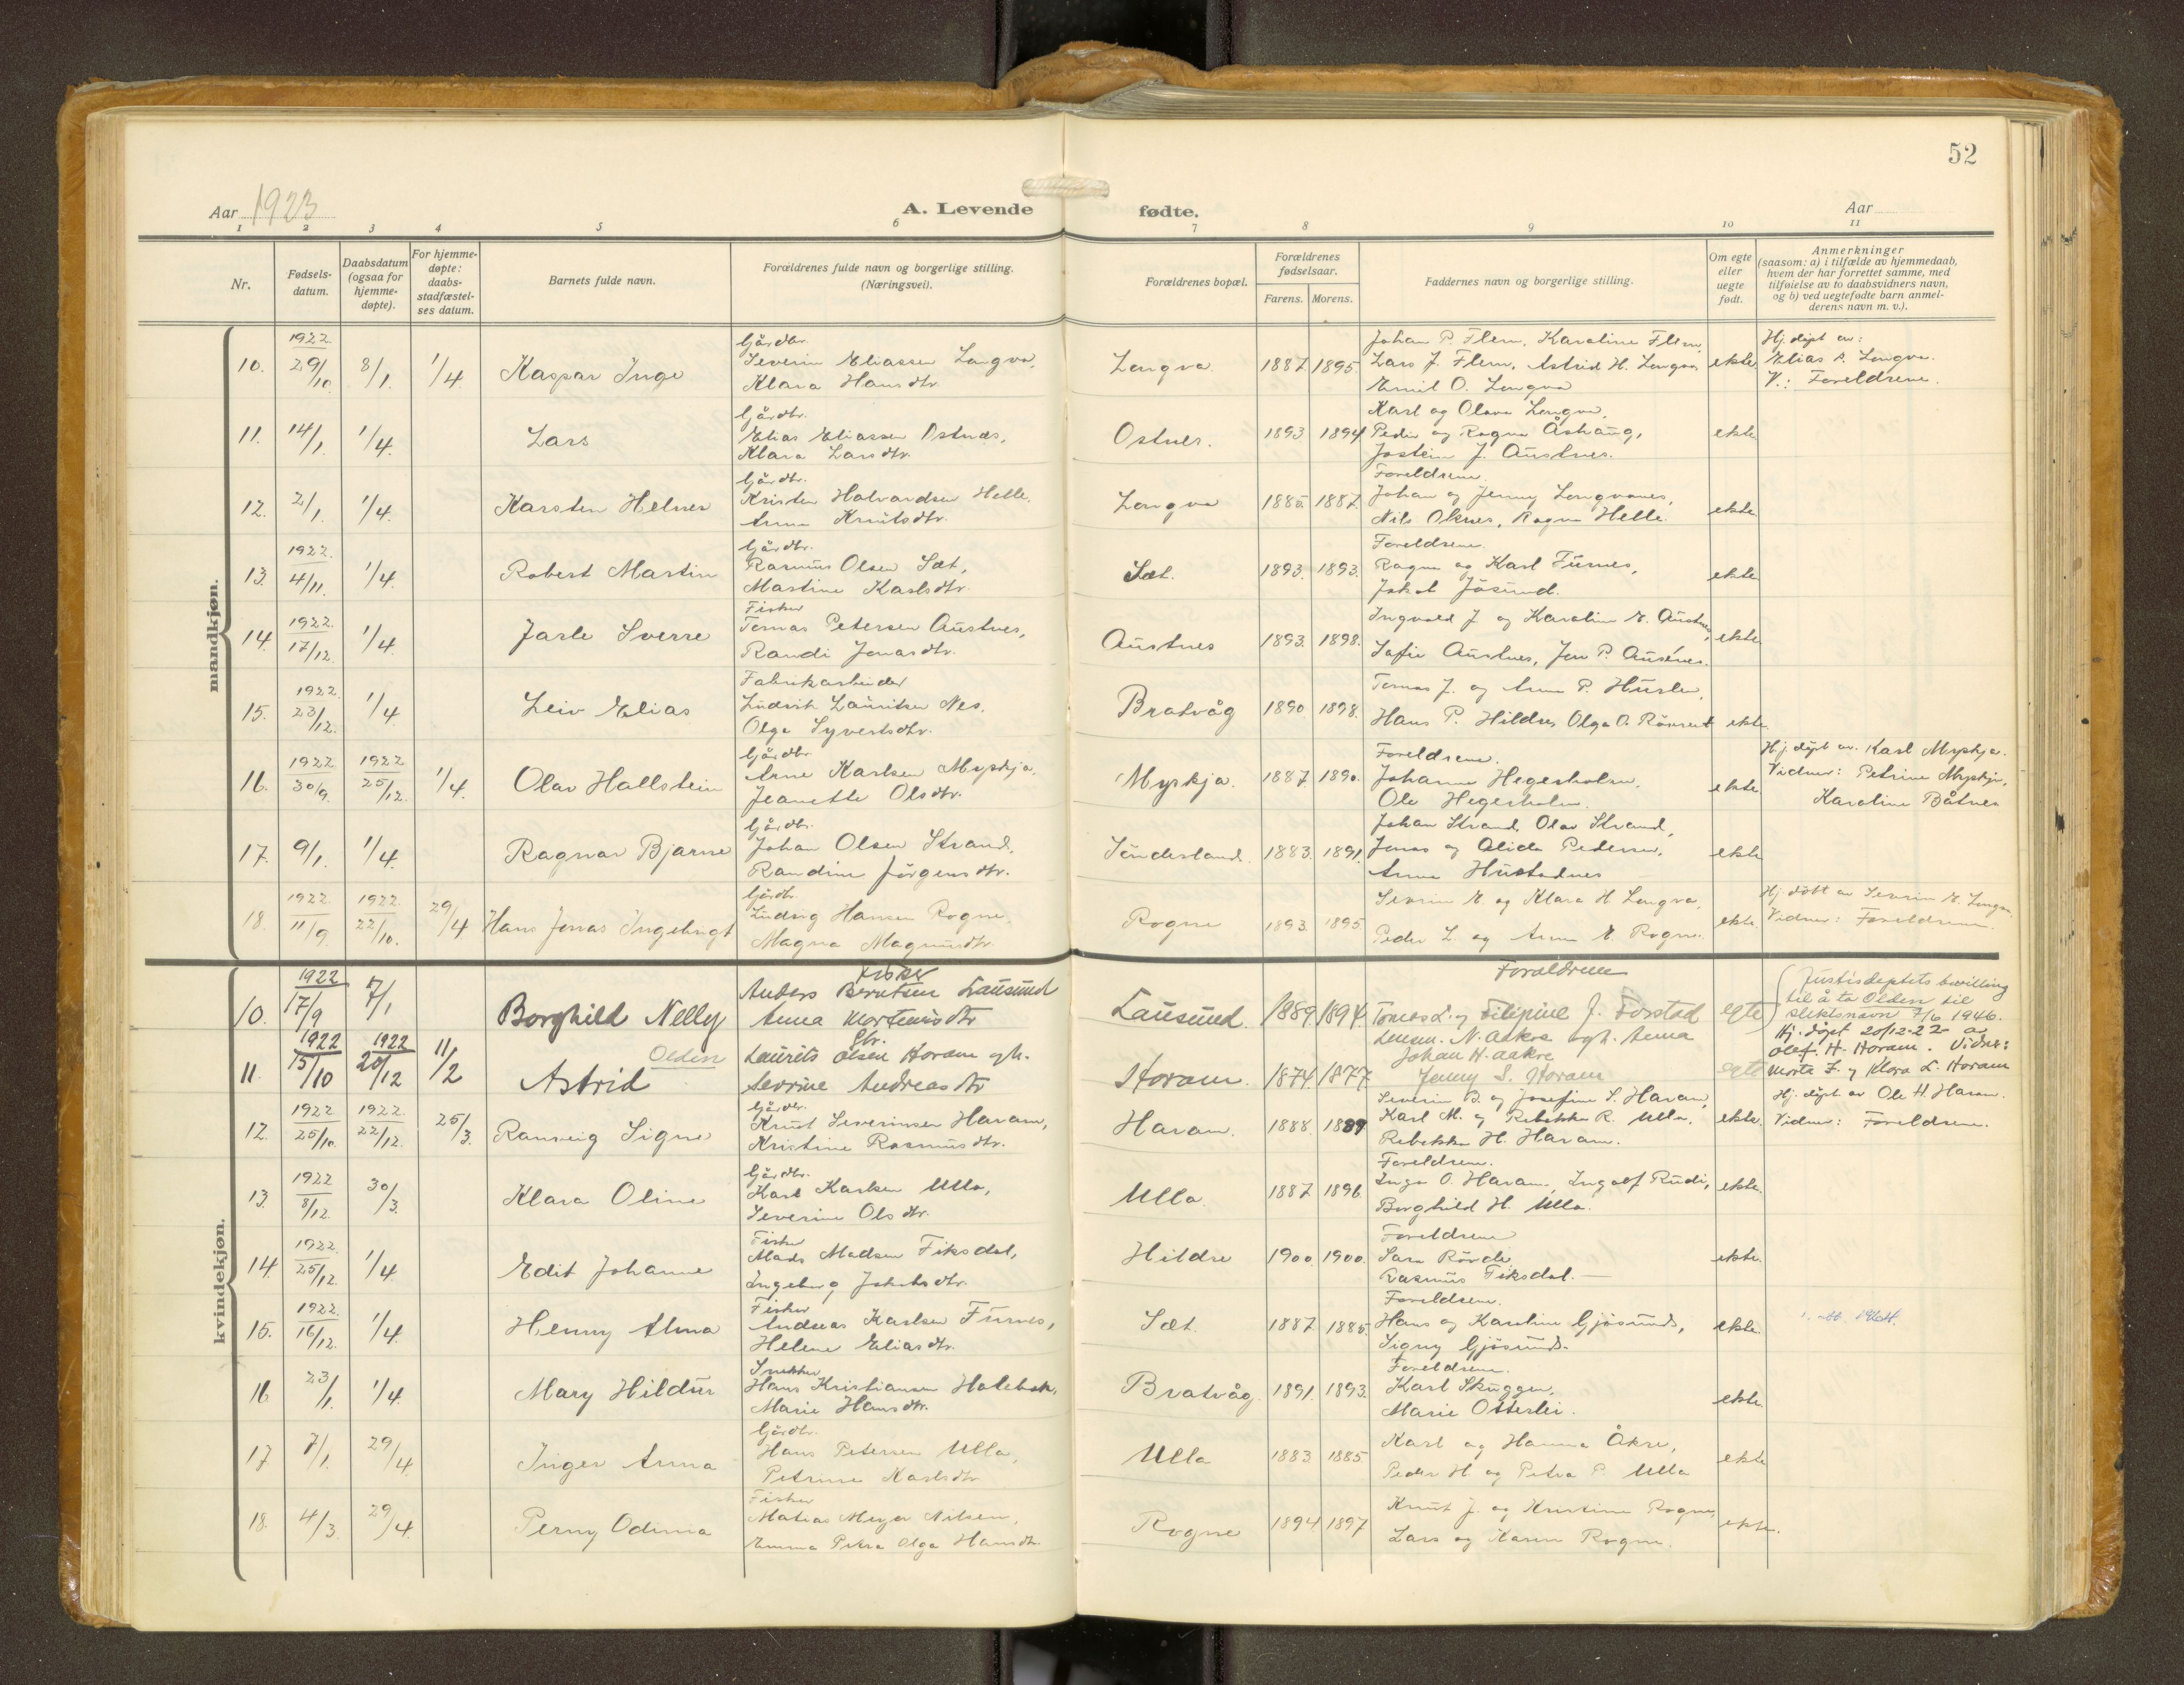 52
Aar 1923
A. Levende
fødte.
Aar
1 2 3 4 5 6 7 8 9 10 11
Nr.
Fødsels-
datum.
Daabsdatum
(ogsaa for
hjemme-
døpte).
For hjemme-
døpte:
daabs-
stadfæstel-
ses datum.
Barnets fulde navn.
Forældrenes fulde navn og borgerlige stilling.
(Næringsvei).
Forældrenes bopæl.
Forældrenes
fødselsaar.
Farens. Morens.
Faddernes navn og borgerlige stilling.
Om egte
eller
uegte
født.
Anmerkninger
(saasom: a) i tilfælde av hjemmedaab,
hvem der har forrettet samme, med
tilføielse av to daabsvidners navn,
og b) ved uegtefødte barn anmel-
derens navn m. v.).
mandkjøn.
10. 1922 29/10 8/1. 1/4 Kaspar Inge
Gårdbr.
Severin Eliassen Longva,
Klara Hansdtr.
Longva 1887 1895
Johan P. Flem, Karoline Flem,
Lars J. Flem, Astrid H. Longva
Emil O. Longva
ekte
Hj. døpt av:
Elias P. Longva.
V.: Foreldrene.
11. 14/1. 1/4. Lars
Gårdbr.
Elias Eliassen Ostnes,
Klara Larsdtr.
Ostnes. 1893 1894
Karl og Olava Longva,
Peder og Ragna Åshaug,
Jostein J. Austnes.
ekte
12. 2/1. 1/4. Karsten Helner
Gårdbr.
Kristen Halvardsen Helle,
Anna Knutsdtr.
Longva 1885 1887
Foreldrene
Johan og Jenny Longvanes,
Nils Oknes, Ragna Helle.
ekte
13. 1922. 4/11. 1/4. Robert Martin
Gårdbr.
Rasmus Olsen Sæt,
Martine Karlsdtr.
Sæt. 1893. 1893.
Foreldrene.
Ragna og Karl Furnes,
Jakob Jøsund.
ekte
14. 1922. 17/12. 1/4. Jarle Sverre
Fisker
Tomas Petersen Austnes,
Randi Jonasdtr.
Austnes 1893. 1898.
Ingvald J. og Karoline E. Austnes,
Sofie Austnes, Jon P. Austnes.
ekte
15. 1922. 23/12. 1/4. Leiv Elias
Fabrikarbeider
Ludvik Lauritsen Nes,
Olga Syvertsdtr.
Bratvåg 1890 1898.
Tomas J. og Anna P. Huslen,
Hans P. Hildre, Olga O. Rønset
ekte.
16. 1922 30/9. 1922 25/12. 1/4. Olav Hallstein
Gårdbr.
Arne Karlsen Myskja,
Jeanette Olsdtr.
Myskja. 1887 1890.
Foreldrene.
Johanne Hegerholm,
Ole Hegerholm.
ekte.
Hj. døpt av. Karl Myskja.
Vidner: Petrine Myskja,
Karoline Båtnes
17. 9/1. 1/4. Ragnar Bjarne
Gårdbr.
Johan Olsen Strand,
Randine Jørgensdtr.
Sønderland. 1883. 1891.
Johan Strand, Olav Strand,
Jonas og Alida Pedersen,
Anna Hustadnes
ekte
18. 1922. 11/9. 1922. 22/10. 29/4 Hans Jonas Ingebrigt
Gårdbr.
Ludvig Hansen Rogne.
Magna Magnusdtr.
Rogne 1893. 1895.
Severin E. og Klara H. Longva,
Peder L. og Anna E. Rogne.
ekte.
Hj. døbt av Severin E. Longva.
Vidner: Foreldrene.
kvindekjøn.
10. 1922 17/9 7/1 Borghild Nelly
Fisker
Anders Berntsen Lausund
Anna Mortensdtr
Lausund. 1889. 1894.
Forældrene
Tomas L. og Filipine J. Forstad
egte
Justisdeptets bevilling
til å ta Olden til
slektsnavn 7/6 1946.
Olden
11. 1922 15/10 1922 20/12 11/2 Astrid
Gbr.
Laurits Olsen Horam og h.
Severine Andreasdtr
Horam. 1874 1877
Lensm. N. Aakre og h. Anna
Johan H. Aakre
Jenny S. Horam
egte
Hj. døpt 20/12-22 av
Olef. H. Horam. Vidner:
Morta L. og Klara L. Horam
12. 1922 25/10. 1922. 22/12. 25/3. Ranveig Signe
Gårdbr.
Knut Severinsen Haram,
Kristine Rasmusdtr.
Haram. 1888. 1889
Severin B. og Josefine S. Haram,
Karl M. og Rebekka R. Ulla,
Rebekka H. Haram.
ekte.
Hj. døpt av Ole H. Haram.
Vidner: Foreldrene.
13. 1922 8/12. 30/3. Klara Oline
Gårdbr.
Karl Karlsen Ulla,
Severine Olsdtr.
Ulla 1887 1896.
Foreldrene.
Inga O. Haram, Ingolf Rudi,
Borghild H. Ulla.
ekte.
14. 1922. 25/12. 1/4. Edit Johanne
Fisker
Mads Madsen Fiksdal,
Ingeborg Jakobsdtr.
Hildre 1900. 1900.
Foreldrene
Sara Røvde
Rasmus Fiksdal.
ekte.
15. 1922. 16/12. 1/4. Henny Alma
Fisker
Andreas Karlsen Furnes,
Helene Eliasdtr.
Sæt. 1887. 1885.
Foreldrene.
Hans og Karoline Gjøsund,
Signy Gjøsund.
ekte.
16. 23/1. 1/4. Mary Hildur
Snekker
Hans Kristiansen Holebak,
Marie Hansdtr.
Bratvåg 1891. 1893.
Foreldrene.
Karl Skuggen,
Marie Otterlei.
ekte
17. 7/1. 29/4. Inger Anna
Gårdbr.
Hans Petersen Ulla,
Petrine Karlsdtr.
Ulla 1883 1885.
Karl og Hanna Åkre,
Peder H. og Petra P. Ulla
ekte
18. 4/3. 29/4. Perny Odinia
Fisker
Matias Meyer Nilsen,
Emma Petra Olga Hansdtr.
Rogne 1894 1897
Knut J. og Kristine Rogne,
Lars og Karen Rogne.
ekte.